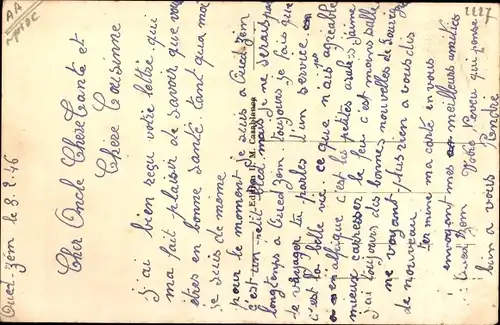 Oued. Zem le 8. 2. 46
Cher Oncle Chere Tante et
Chere Cousinne
j'ai bien reçu votre lettre qui
ma fait plaisir de savoir que vous
etres en bonne santé. tant qua moi
je suis de meme
pour le moment je suis a Oued zem
c'est un petit bled mais je ne serais pas
longtemps a Oued zem toujours je fais que
de voyager tu parles d'un service
c'est la belle vie ce que n'ais agreable
en afrique c'est les petites
mieux caresser le feu c'est moins salle
j'ai toujours des bonnes nouvelles de
ne voyant plus rien a vous dis
de nouveau
Ter mine ma carte en vous
envoyant mes meilleurs amities
Oued Zem Votre Neveu qui pense
bien a vous
Edition M. Casablanca
AA
Maroc
2227